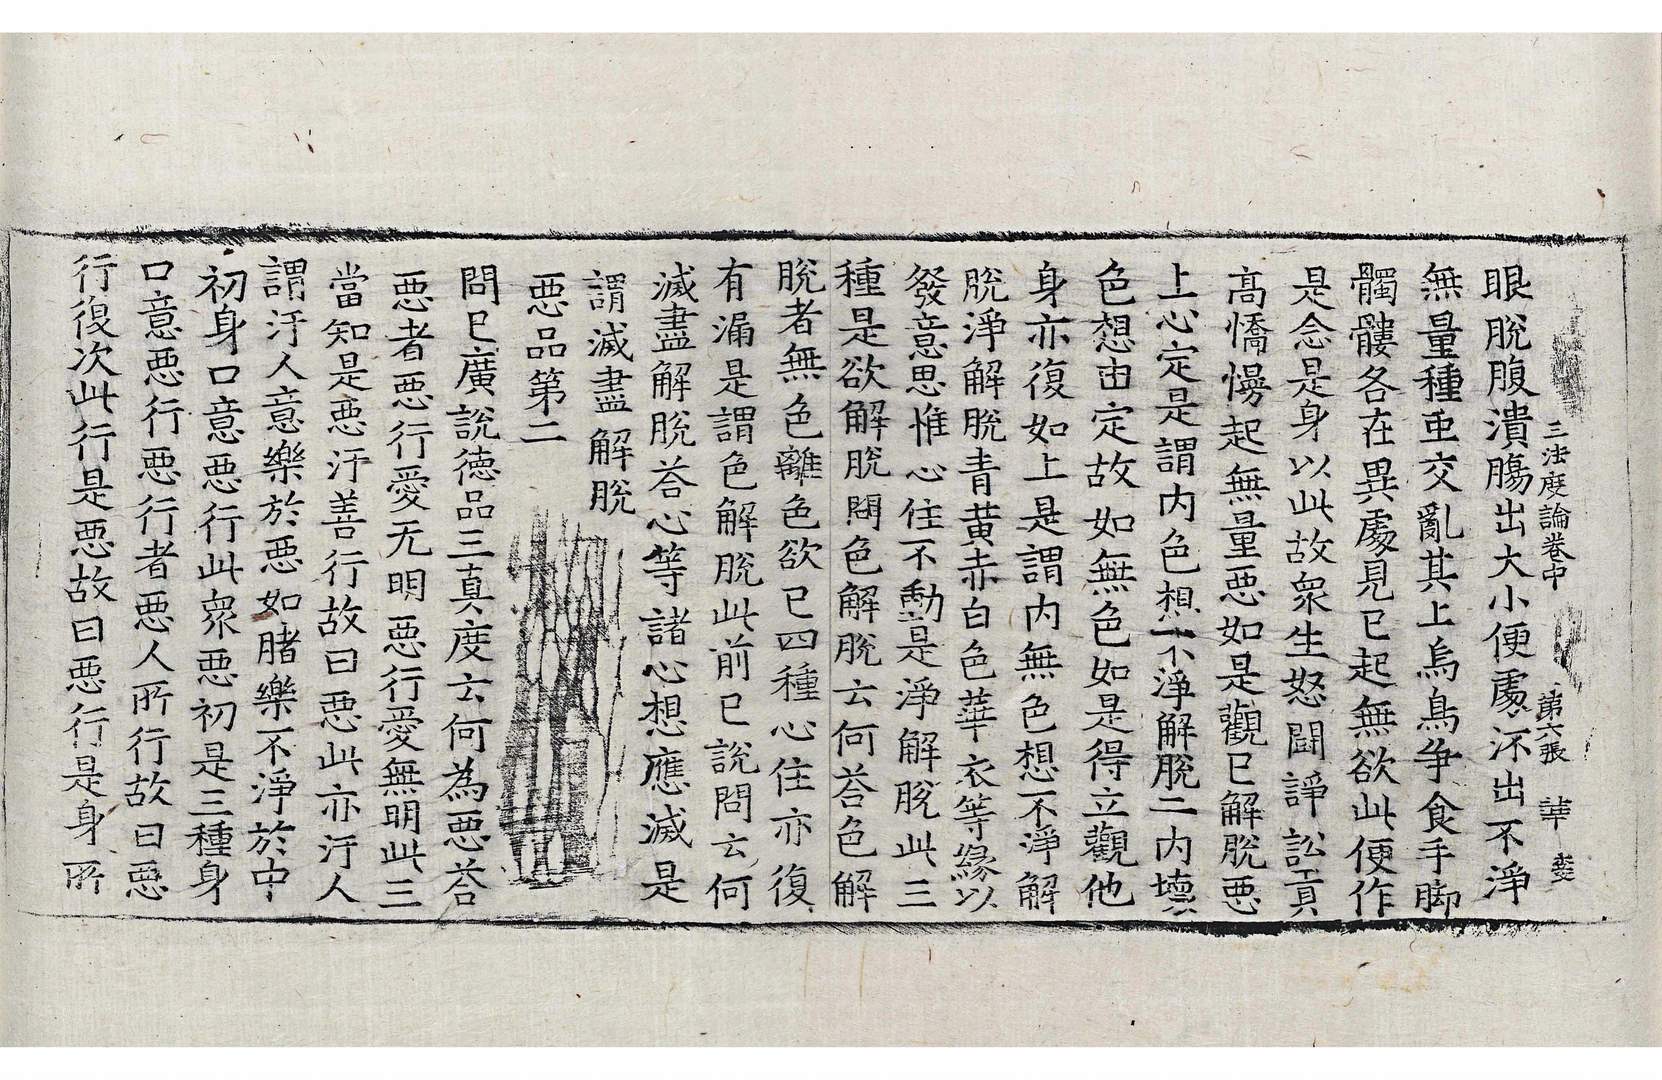 三法度論卷中 第六張 華
眼脫腹潰腸出大小便處汚出不淨
無量種䖝交亂其上烏鳥争食手脚
髑髏各在異處見已起無欲此便作
是念是身以此故衆生怒鬪諍訟貢
高憍慢起無量惡如是觀已解脫惡
上心定是謂内色想不淨解脫二内壞
色想由定故如無色如是得立觀他
身亦復如上是謂内無色想不淨解
脫淨解脫青黄赤白色華衣等緣以
發意思惟心住不動是淨解脫此三
種是欲解解脫問色解脫云何荅色解
脫者無色離色欲已四種心住亦復
有漏是謂色解脫此前已說問云何
滅盡解脫荅心等諸心想應滅是
謂滅盡解脫
惡品第二
問已廣説德品三真度云何為惡荅
惡者惡行愛无明惡行愛無明此三
當知是惡汙善行故曰惡此亦汙人
謂汙人意樂於惡如豬樂不淨於中
初身口意惡行此衆惡初是三種身
口意惡行惡行者惡人所行故曰惡
行復次此行是惡故曰惡行是身所